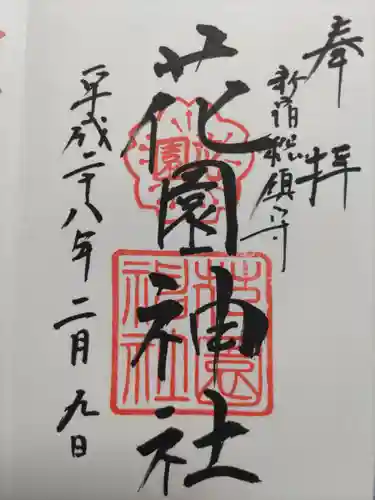 奉拝
新宿総鎮守
花園神社
平成二十八年二月九日
花園神社